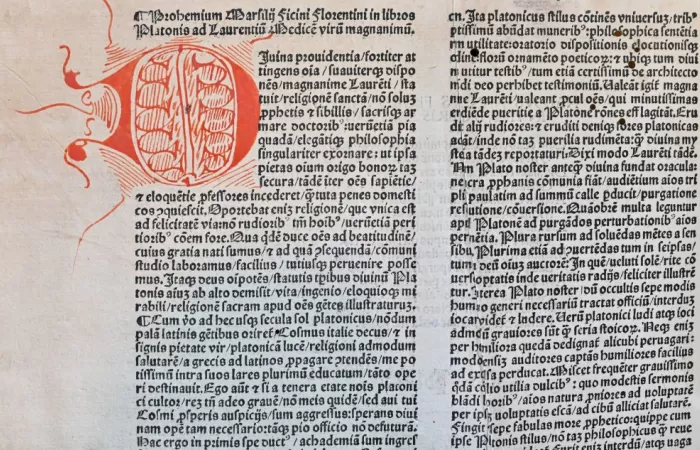 ¶Prohemium Marsilij Ficini Florentini in libros
Platonis ad Laurentiũ Medicẽ virũ magnanimũ.
Iuina prouidentia/fortiter at
tingens oĩa/suauiterqʒ dispo
nẽs/magnanime Laurẽti/sta
tuit/religionẽ sanctã/nõ soluʒ
ꝓphetis ⁊ sibillis/sacrisqʒ ar
mare doctoribꝰ:verũetiã pia
quadã/elegãtiqʒ philosophia
singulariter exornare: ut ipsa
pietas oium origo bonoꝝ taʒ
secura/tãdẽ iter oẽs sapiẽtie/
⁊ eloquẽtie ꝓfessores incederet/ꝗ̃tuta penes domesti
cos ↄquiescit. Oportebat eniʒ religionẽ/que vnica est
ad felicitatẽ via:nõ rudioribꝰ tm̃ hoĩbꝰ/verũetiã peri
tioribꝰ cõem fore. Qua ꝗdẽ duce oẽs ad beatitudinẽ/
cuius gratia nati sumus/⁊ ad quã ↄsequendã/cõmuni
studio laboramus/facilius/tutiusqʒ peruenire posse
mus. Itaqʒ deus oĩpotẽs/statutis tꝑibus diuinũ Pla
tonis aiuʒ ab alto demisit/vita/ingenio/eloquioqʒ mi
rabili/religionẽ sacram apud oẽs gẽtes illustraturuʒ.
¶Cum vo ad hec usqʒ secula sol platonicus/nõdum
palã latinis gẽtibus oriret᷑. Cosmus italie decus/⁊ in
signis pietate vir/platonicã lucẽ/religioni admodum
salutarẽ/a grecis ad latinos ꝓpagare ↄtendẽs/me po
tissimũ intra suos lares plurimũ educatum/tãto ope
ri destinauit. Ego aũt ⁊ si a tenera etate noĩs platoni
ci cultor/rez tñ adeo grauẽ/nõ meis quidẽ/sed aui tui
Cosmi ꝓsperis auspicijs/sum aggressus:sperans diui
nam opẽ tam necessario:tãqʒ pio officio nõ defuturã.
Hac ergo in primis spe ductꝰ/achademiã sum ingres
cn. Ita platonicus stilus cõtinẽs vniuersuʒ/tribꝰ
ptissimũ abũdat muneribꝰ:philosophica sentẽtia
utilitate:oratorio dispositionis elocutionisqʒ
florũ ornamẽto poeticoꝝ:⁊ ubiqʒ tum diui
utitur testibꝰ/tum etiã certissimũ de architecto
mũdi deo perhibet testimoniũ. Ualeãt igit᷑ magna
nime Laurẽti/ualeant ꝓcul oẽs/qui minutissima
erdiẽde pueritie a Platone rõnes efflagitãt. Eru
dit alij rudiores:⁊ eruditi deniqʒ fores platonicas
adãt/inde nõ taʒ puerilia rudimẽta:ꝗ̃ diuina my
stẽa tãdeʒ reportaturi. Dixi modo Laurẽti tãdẽ.
Nã Plato noster anteqʒ diuina fundat oracula:
ꝓphanis cõmunia fiãt/auditiũm aĩos tri
pli paulatim ad summũ calle ꝑducit/purgatione
resolutiõe/cõuersiõne. Quãobrẽ multa leguntur
apd Platonẽ ad purgãdos perturbationibꝰ aĩos
pernẽtia. Plura rursum ad soluẽdas mẽtes a sen
sibꝰ. Plurima etiã ad ↄuertẽdas tum in seipsas/
tum ĩ deũ oiuʒ auctorẽ: In quẽ/ueluti solẽ/rite cõ
optatis inde veritatis radijs/feliciter illustrẽ
tur. Interea Plato noster/dũ occultis sepe modis
humano generi necessariũ tractat officiũ/interduʒ
iocari videt᷑ ⁊ ludere. Uerũ platonici ludi atqʒ ioci
admdũ grauiores sũt ꝗ̃ seria stoicoꝝ. Neqʒ eniʒ
per humiliora quedã dedignat᷑ alicubi peruagari:
auditores captãs humiliores facilius
ad excelsa perducat. Miscet frequẽter grauissimo
ꝗdã cõsilio utilia dulcibꝰ: quo modestis sermonis
blãdi horibꝰ/aĩos natura ꝓniores ad uoluptatẽ
per ipsʒ voluptatis escã/ad cibũ alliciat salutarẽ.
Fingit sepe fabulas more ꝓphetico:quippe cum
ipse Pltonis stilus/nõ taʒ philosophicus ꝗ̃ reue